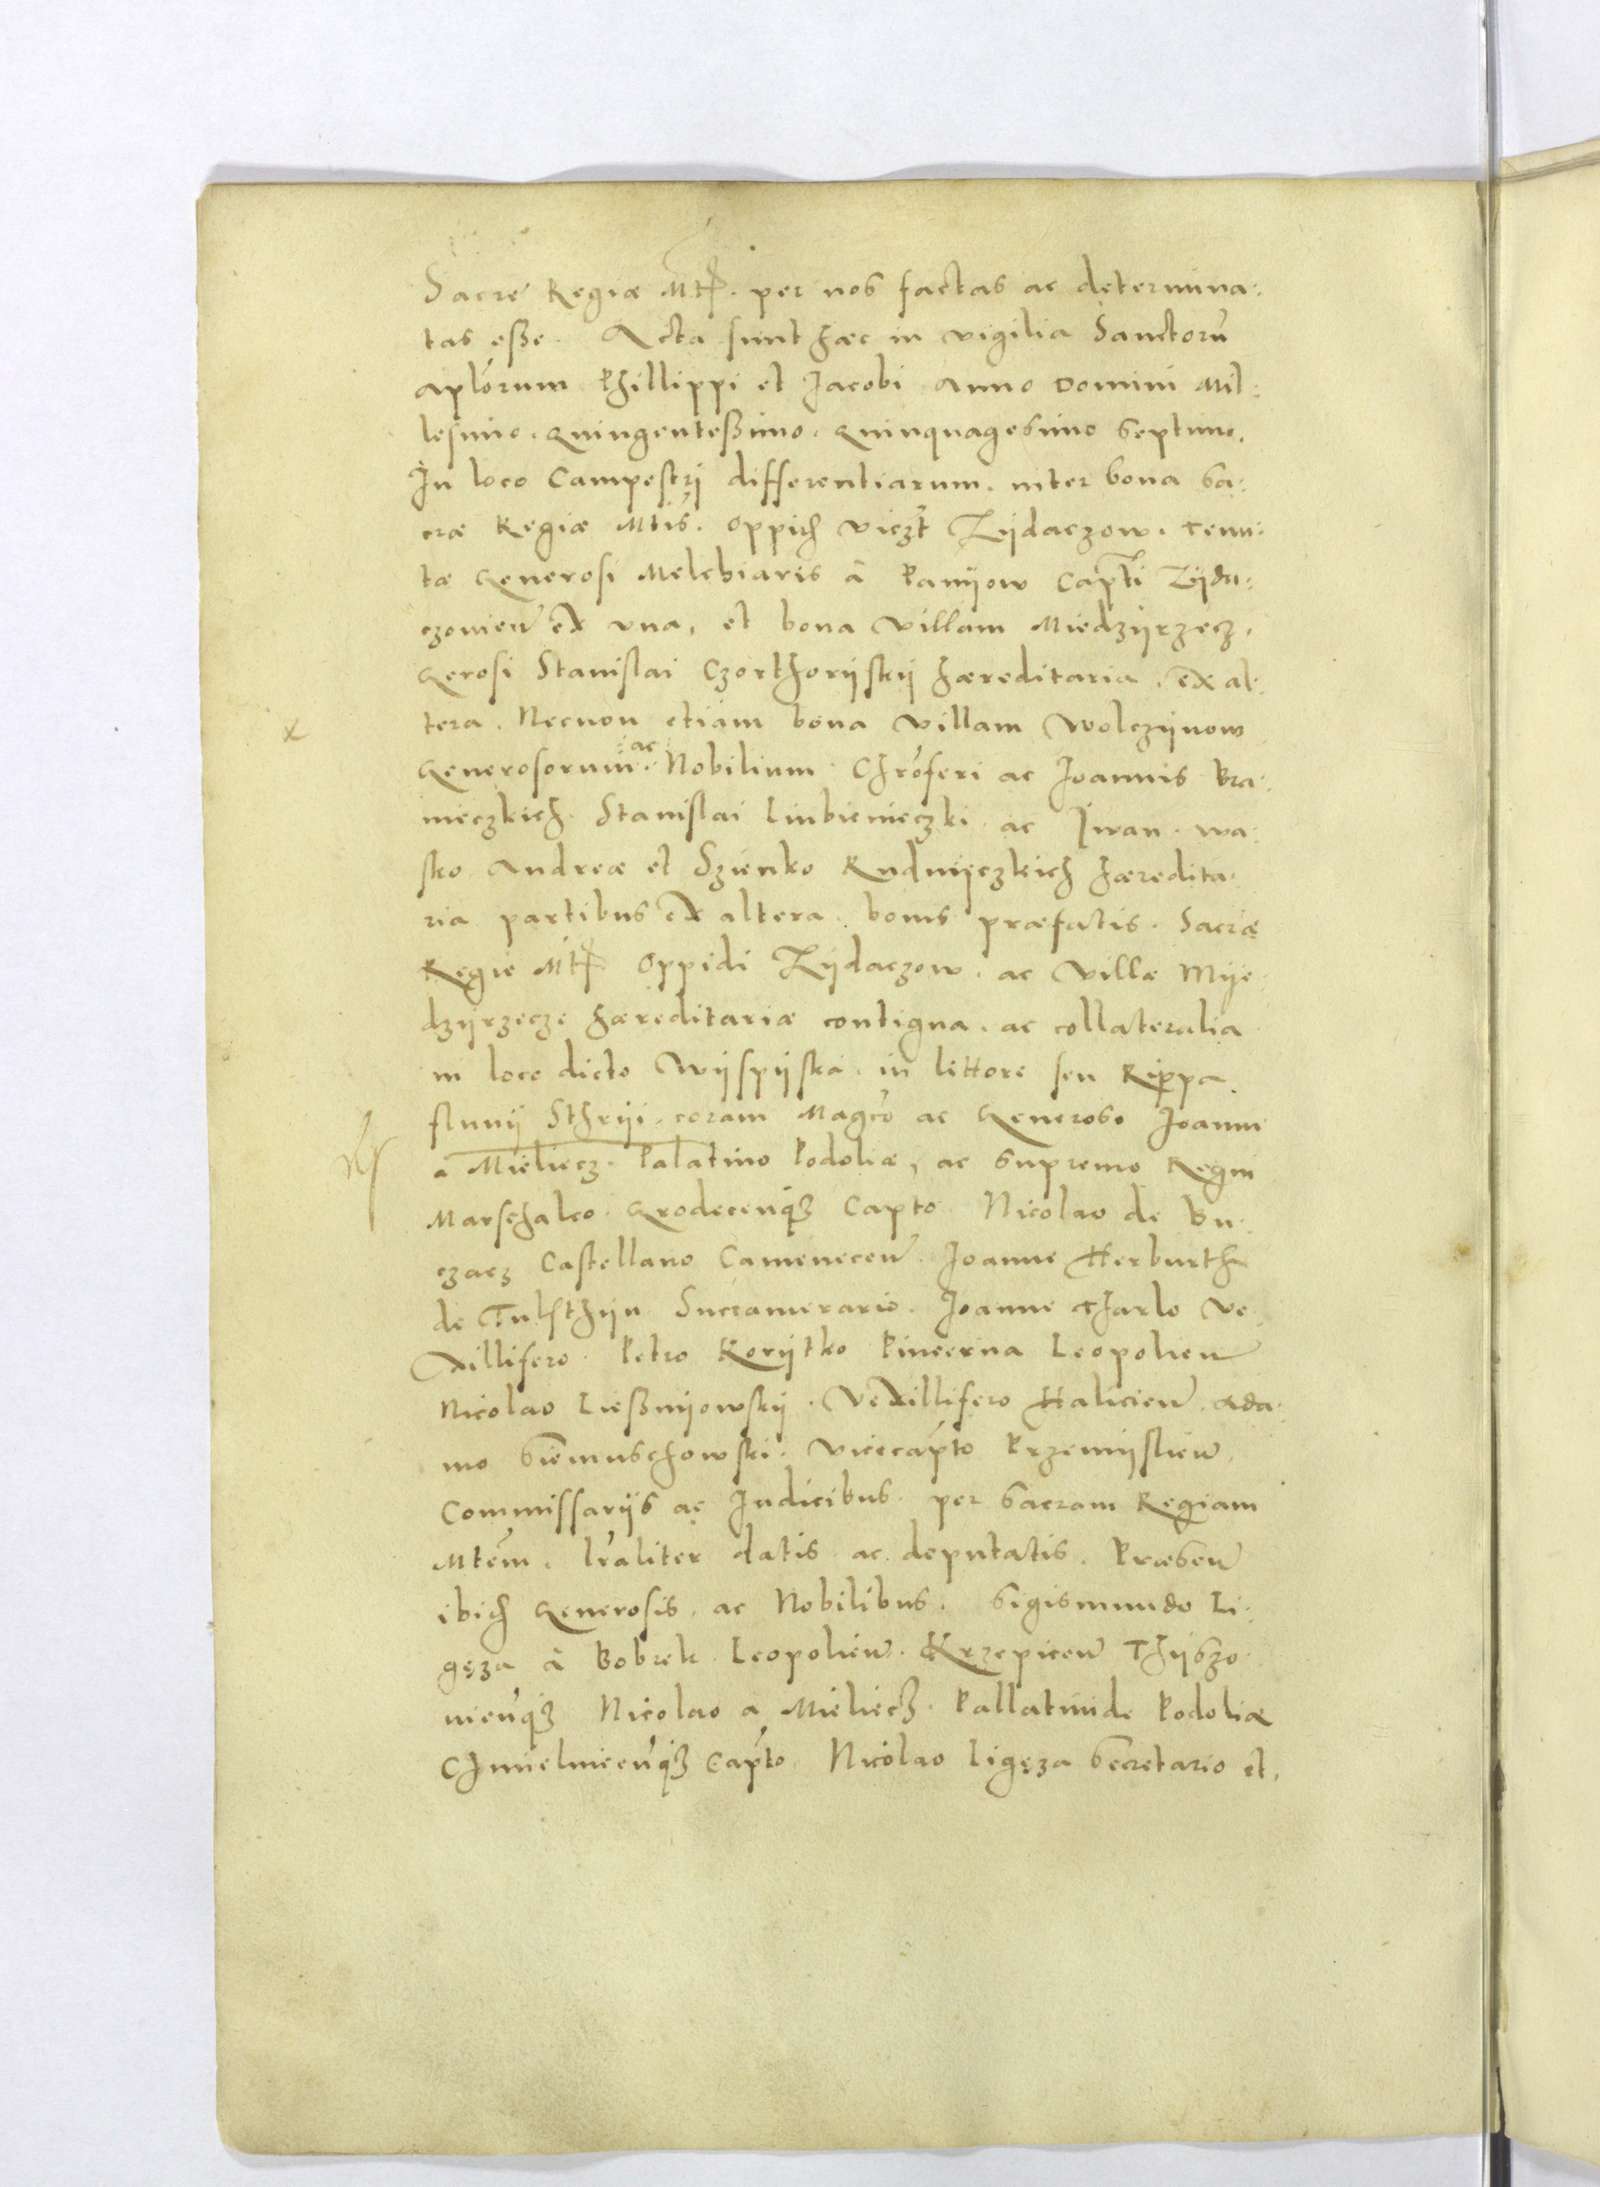 Sacre Regiæ Mtis. per nos factas ac determina:
tas eße. Acta sunt hæc in vigilia Sanctorũ
aplorum Phillippi et Jacobi Anno Domini Mil:
lesimo. Quingenteßimo. Quinquagesimo septimo.
In loco Campestrj differentiarum. inter bona sa:
cræ Regiæ Mtis. oppidj viczt Zijdaczow. tenu:
tæ Generosi Melchiaris â Paniow Capti Zijda:
czowien ex vna, et bona villam Miedzijrzecz,
Gerosi Stanislai Czorthorijskij hæreditaria, ex al:
tera. Necnon etiam bona villam Wolczijnow
Generosorum ac Nobilium Chroferi ac Joannis Bra:
nieczkich. Stanislai Liubienieczki ac Jwan. Wa:
sko Andreæ et Szienko Rudnijczkich hæredita:
ria partibus ex altera. bonis præfatis. Sacræ
Regie Mtis Oppidi Zijdaczow. ac villæ Mije:
dzijrzecze hæreditariæ contigua. ac collateralia
in loco dicto Wijspijska. in littore seu Rippa
fluuij Sthrij. coram Magco ac Generoso Joanne
a Mieliecz. Palatino Podoliæ, ac supremo Regni
Marschalco. Grodecenqз Capto. Nicolao de Bu:
czacz Castellano Camenecen. Joanne Herburth
de Fulsthijn Succamerario. Joanne Tharlo ve:
xillifero. Petro Korijtko Pincerna Leopolien
Nicolao Ließnijowskij. vexillifero Halicien. Ada:
mo Siemuschowski. vicecapto Przemijslien.
Commissarijs ac Judicibus. per sacram Regiam
Mtem. lraliter datis ac deputatis. Præsen
ibidj Generosis. ac Nobilibus. Sigismundo Li:
gęza â Bobrek Leopolien. Krzepicen Thijszo:
wienqз Nicolao a Mieliecz. Pallatinide Podoliæ
Chmielnicenqз Capto. Nicolao Ligęza secretario et